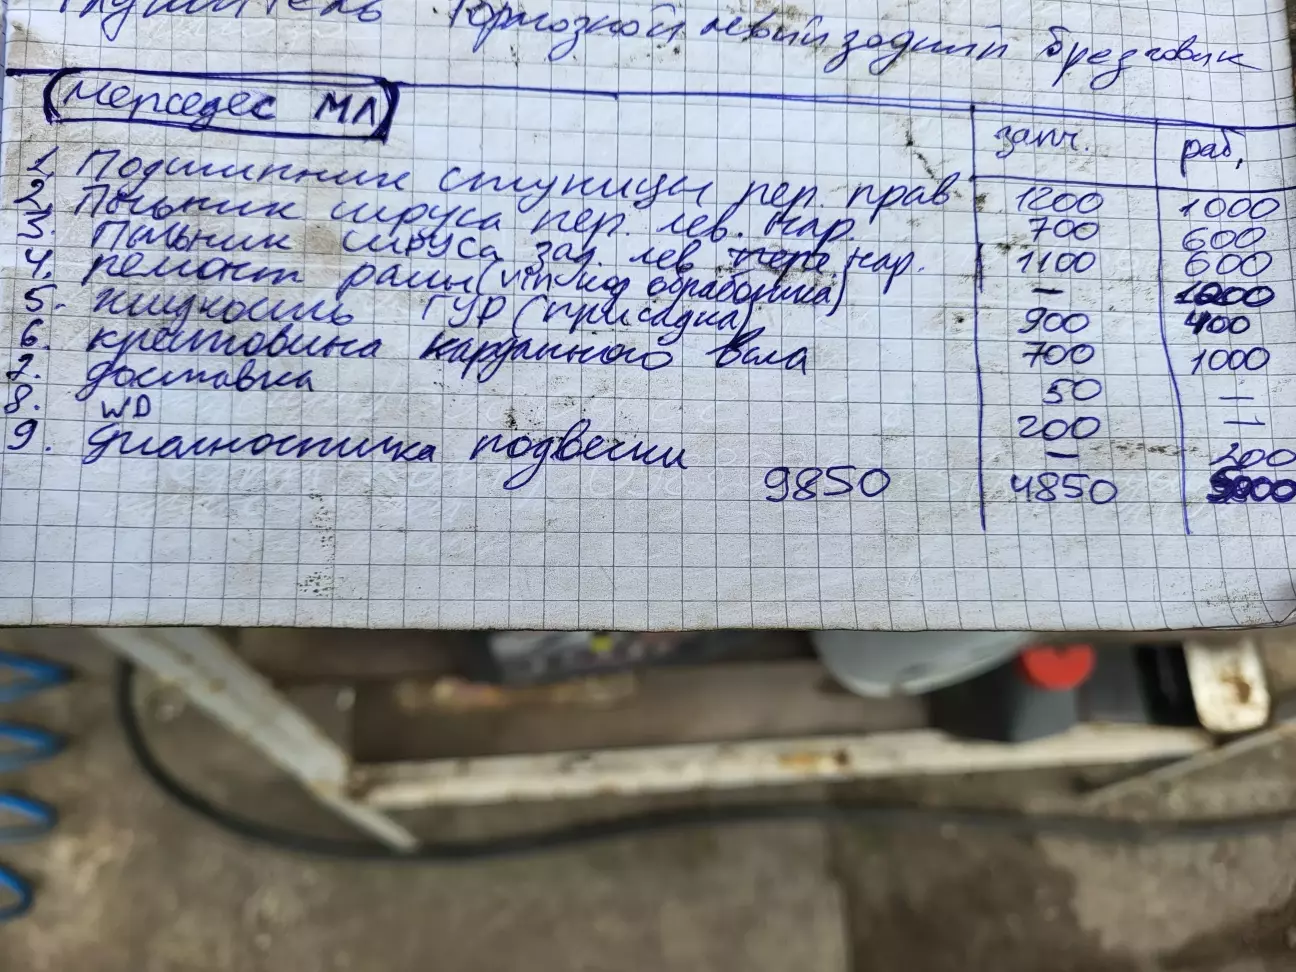 Глушитель тормозной левый задний брезговик
Мерседес МЛ
запч. раб,
1. Подшипник ступицы пер. прав 1200 1000
2. Пыльник шруса пер. лев. нар. 700 600
3. Пыльник шруса зад. лев нар. 1100 600
4. ремонт рамы (vin-код обработка) — 1000
5. жидкость ГУР (присадка) 900 400
6. крестовина карданного вала 700 1000
7. доставка 50 —
8. WD 200 —
9. диагностика подвески — 200
9850 4850 5000